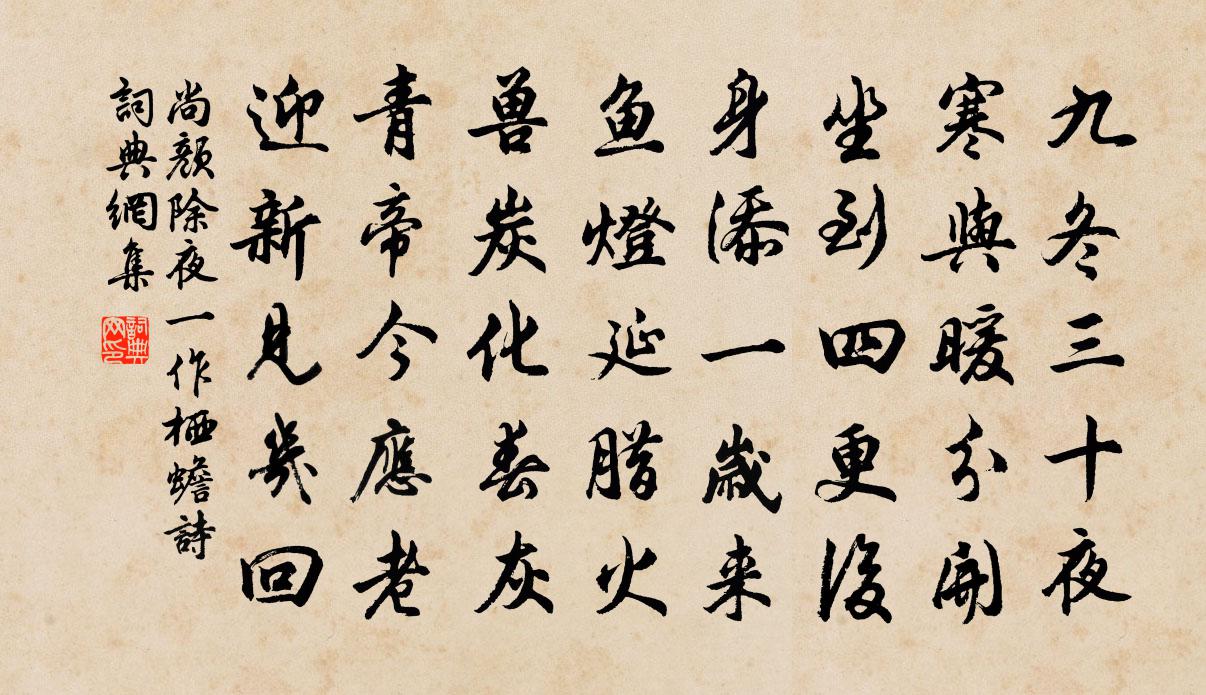 九冬三十夜
寒與暖分開
坐到四更後
身添一歲来
鱼燈延腊火
兽炭化春灰
青帝今應老
迎新見幾回
尚顔除夜一作栖蟾詩
詞典網集
詞典网印